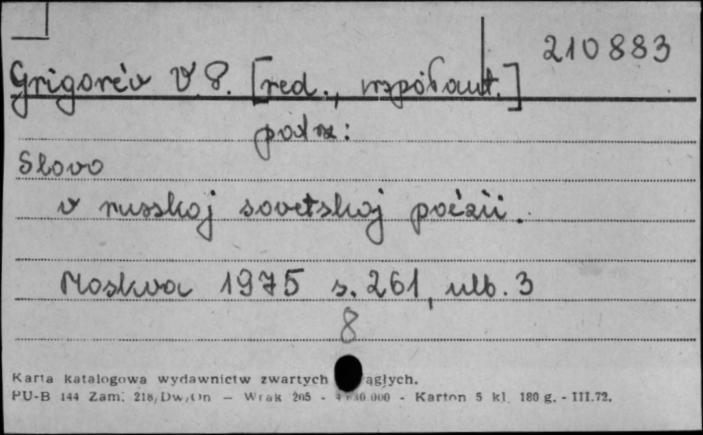 210883
Grigor'ev V. P. [red., współaut.]
patrz:
Slovo
v russkoj sovetskoj poézii.
Moskva 1975 s. 261, nlb. 3
8
Karta katalogowa wydawnictw zwartych ciągłych.
PU-B 144 Zam. 218/Dw/On — W-ak 205 - 000 - Karton 5 kl. 180 g. - III.72.